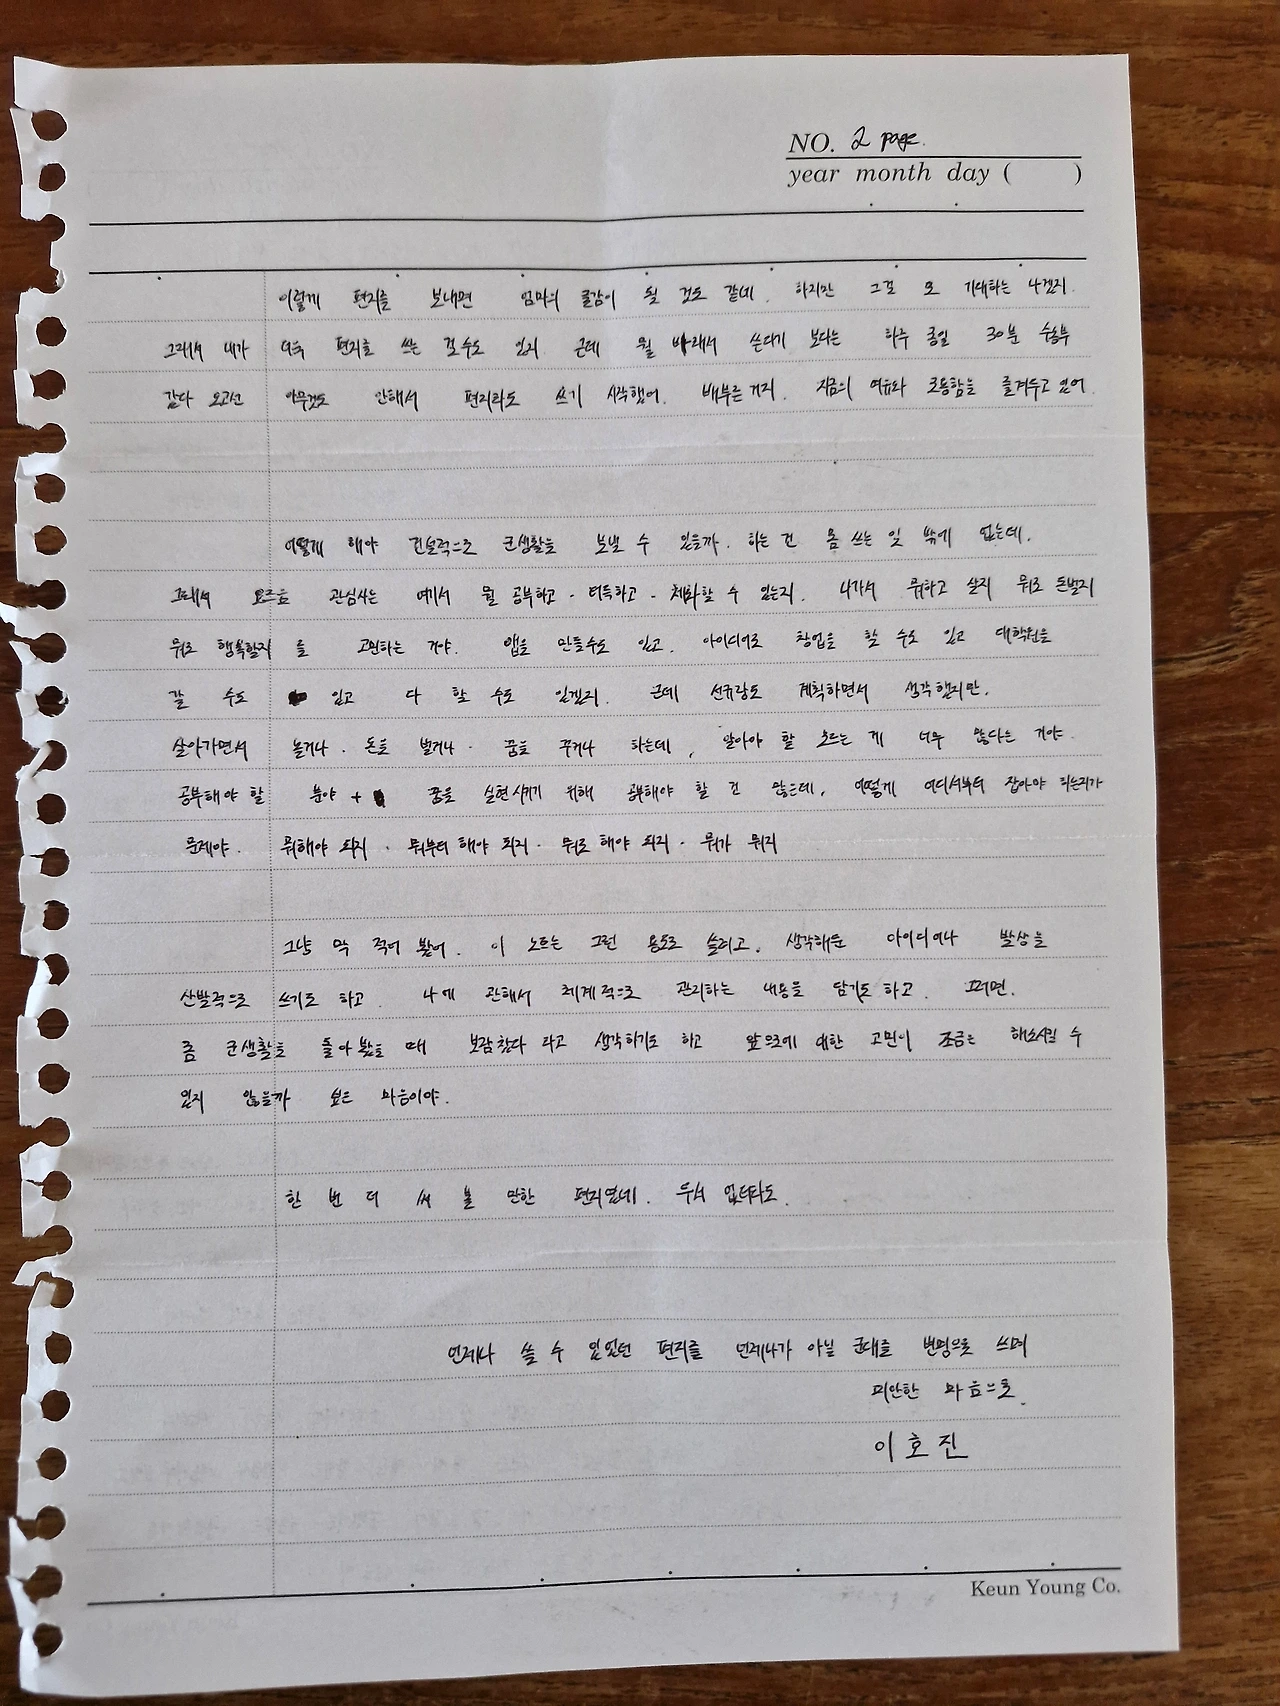 NO. 2 page.
year month day ( )
이렇게 편지를 보내면 엄마의 글감이 될 것도 같네. 하지만 그걸 또 기대하는 나겠지.
그래서 내가 더욱 편지를 쓰는 걸 수도 있지 근데 뭘 바래서 쓴다기 보다는 하루 종일 30분
갔다 오고선 아무것도 안해서 편지라도 쓰기 시작했어. 배부른 거지. 지금의 여유와 조용함을 즐겨두고 있어.
어떻게 해야 건설적으로 군생활을 보낼 수 있을까. 하는 건 몸 쓰는 일 밖에 없는데.
그래서 요즈음 관심사는 여기서 뭘 공부하고 · 터득하고 · 체화할 수 있는지. 나가서 뭐하고 살지 뭐로 돈벌지
뭐로 행복할지 를 고민하는 거야. 앱을 만들수도 있고, 아이디어로 창업을 할 수도 있고 대학원을
갈 수도 있고 다 할 수도 있겠지. 근데 선규랑도 계획하면서 생각했지만,
살아가면서 놀거나 · 돈을 벌거나 · 꿈을 꾸거나 하는데, 알아야 할 모르는 게 너무 많다는 거야.
공부해야 할 분야 + 꿈을 실현시키기 위해 공부해야 할 건 많은데, 어떻게 어디서부터 잡아야 되는지가
문제야. 뭐해야 되지 · 뭐부터 해야 되지 · 뭐로 해야 되지 · 뭐가 뭐지
그냥 막 적어 봤어. 이 노트는 그런 용도로 쓸려고. 생각해둔 아이디어나 발상을
산발적으로 쓰기도 하고. 나에 관해서 체계적으로 관리하는 내용을 담기도 하고. 그러면.
좀 군생활을 돌아 봤을 때 보람찼다 라고 생각하기도 하고 앞으로에 대한 고민이 조금은 해소시킬 수
있지 않을까 싶은 마음이야.
한 번 더 써 볼 만한 편지였네. 두서 없더라도.
언제나 쓸 수 있었던 편지를 언제나가 아닐 군대를 변명으로 쓰며
미안한 마음으로.
이호진
Keun Young Co.